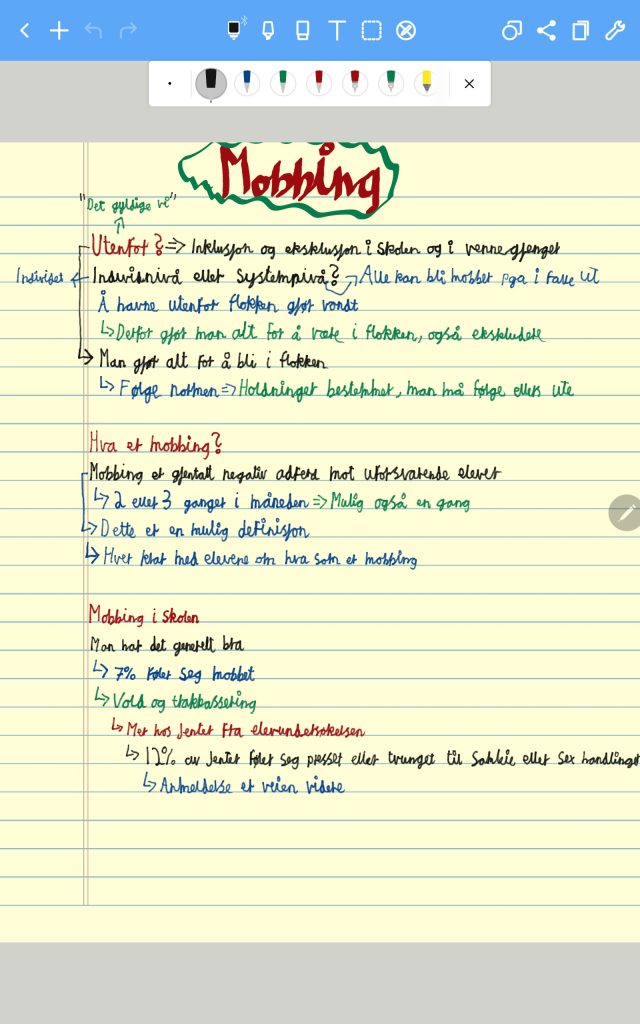 Mobbing
"Det gyldige vi"
Utenfor? => Inklusjon og eksklusjon i skolen og i vennegjenget
Individet Individnivå eller systemnivå? Alle kan bli mobbet pga i faue ut
Å havne utenfor flokken gjør vondt
Derfor gjør man alt for å være i flokken, også ekskludere
Man gjør alt for å bli i flokken
Følge normen => Holdninger bestemmer, man må følge ellers ute
Hva er mobbing?
Mobbing er gjentatt negativ adferd mot uforsvarende elever
2 eller 3 ganger i måneden => Mulig også en gang
Dette er en mulig definisjon
Hver klar med elevene om hva som er mobbing
Mobbing i skolen
Man har det generelt bra
7% føler seg mobbet
Vold og trakassering
Mer hos jenter fra elevundersøkelsen
12% av jenter føler seg presset eller tvunget til samleie eller sex handlinger
Anmeldelse er veien videre